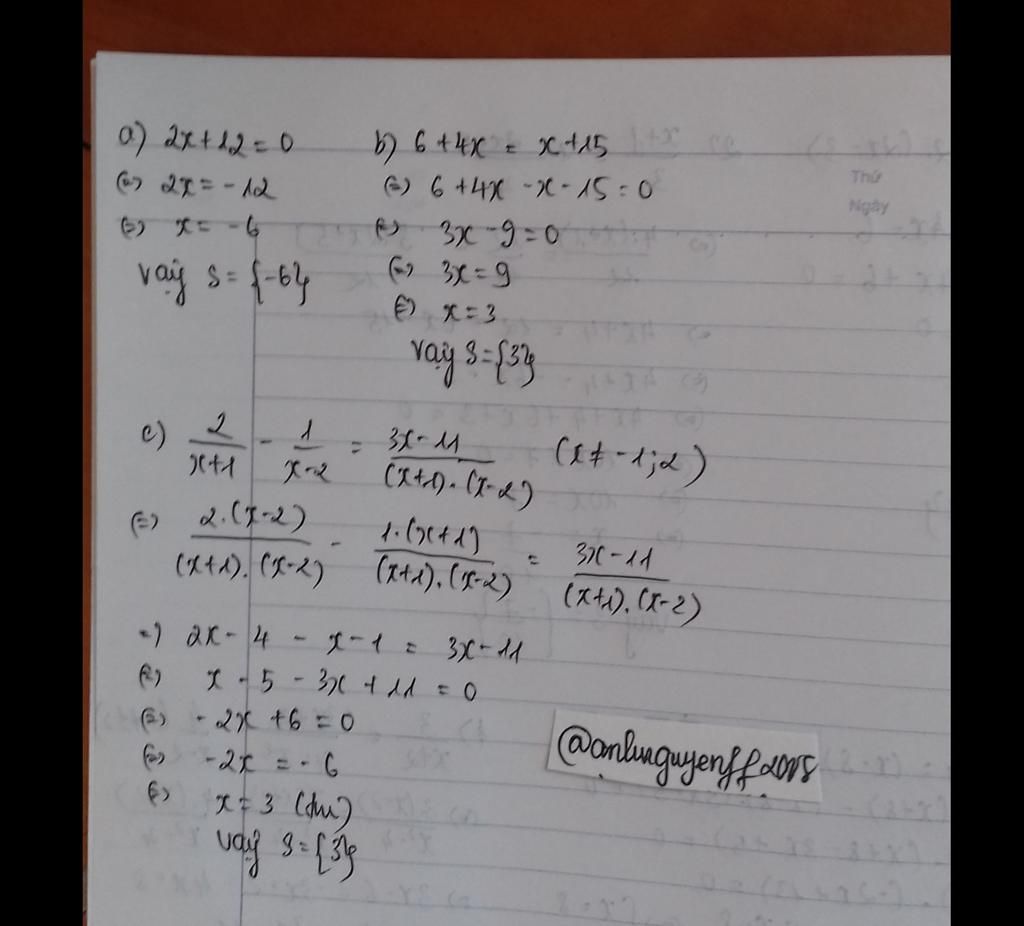 a) 2x+12=0
(=) 2x=-12
(=) x=-6
Vậy S={-6}
b) 6+4x = x+15
(=) 6+4x-x-15=0
(=) 3x-9=0
(=) 3x=9
(=) x=3
Vậy S={3}
c) 2/(x+1) - 1/(x-2) = (3x-11)/((x+1).(x-2)) (x≠-1;2)
(=) 2.(x-2)/((x+1).(x-2)) - 1.(x+1)/((x+1).(x-2)) = (3x-11)/((x+1).(x-2))
=) 2x-4-x-1 = 3x-11
(=) x-5-3x+11=0
(=) -2x+6=0
(=) -2x=-6
(=) x=3 (t/m)
Vậy S={3}
Thứ
Ngày